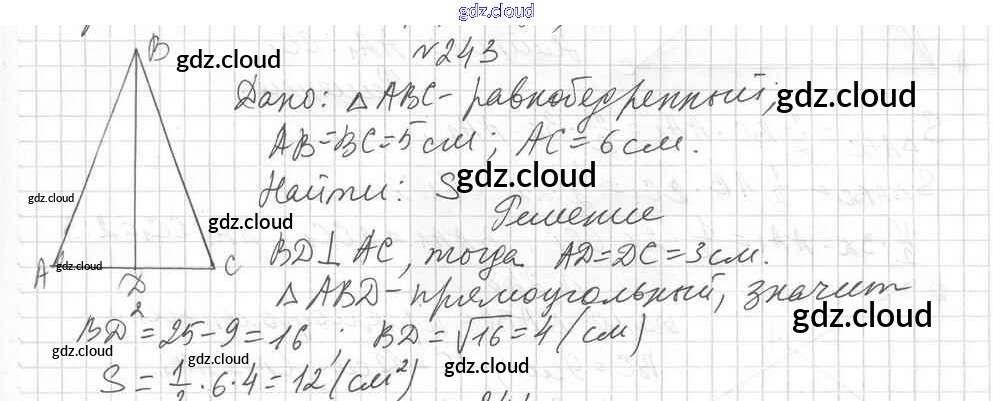 gdz.cloud
№243
B
gdz.cloud
Дано: △ABC - равнобедренный,
gdz.cloud
AB=BC=5см; AC=6см.
gdz.cloud
Найти: S
gdz.cloud
Решение
gdz.cloud
BD⊥AC, тогда AD=DC=3см.
A
gdz.cloud
D
C
△ABD - прямоугольный, значит
gdz.cloud
BD²=25-9=16; BD=√16=4 (см)
gdz.cloud
gdz.cloud
gdz.cloud
S=1/2·6·4=12 (см²)